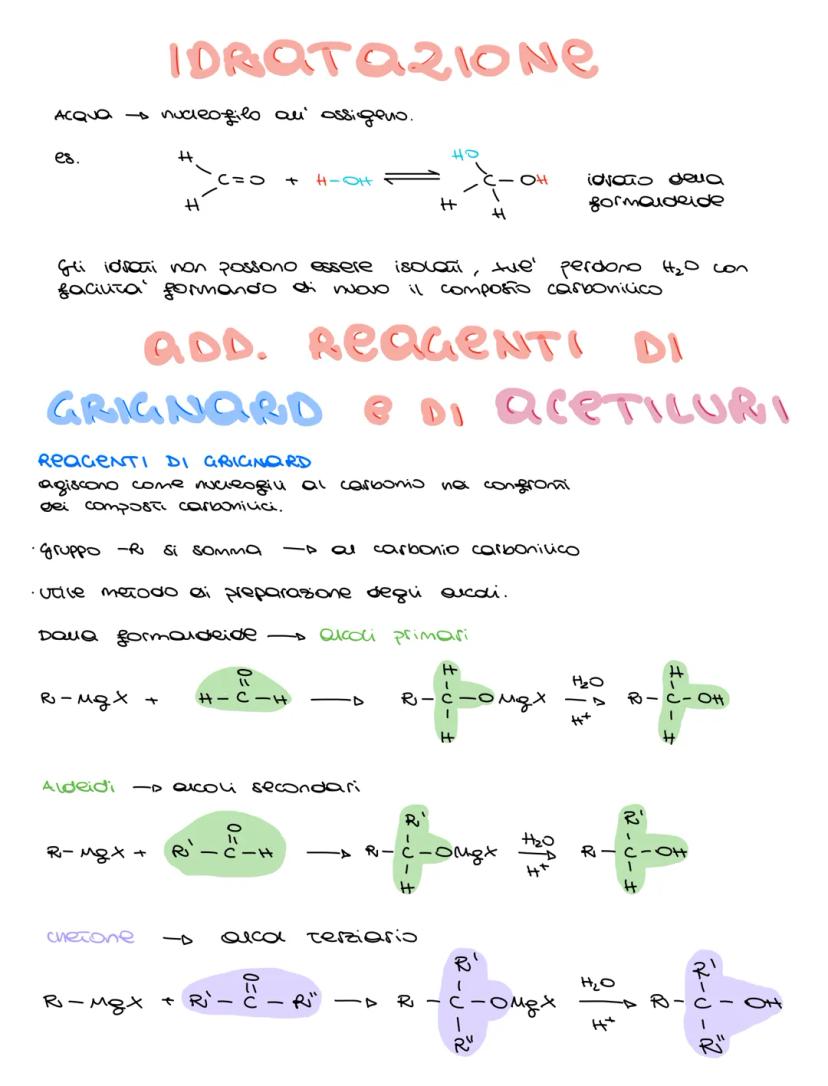 IDRATAZIONE
Acqua → nucleofilo all' ossigeno.
es.
H
H
C=O + H-OH ⇌
HO
C-OH
H
H
idrato della
formaldeide
Gli idrati non possono essere isolati, xkè perdono H₂O con
facilità formando di nuovo il composto carbonilico
ADD. REAGENTI DI
GRIGNARD E DI ACETILURI
REAGENTI DI GRIGNARD
agiscono come nucleofili al carbonio nei confronti
dei composti carbonilici.
· gruppo -R si somma → al carbonio carbonilico
· utile metodo di preparazione degli alcoli.
Dalla formaldeide → alcoli primari
O
H
H
R-MgX + H-C-H → R-C-OMgX H₂O H⁺ → R-C-OH
H
H
Aldeidi → alcoli secondari
O
R'
R'
R-MgX + R'-C-H → R-C-OMgX H₂O H⁺ → R-C-OH
H
H
chetone → alcol terziario
O
R'
R'
R-MgX + R'-C-R" → R-C-OMgX H₂O H⁺ → R-C-OH
R"
R"